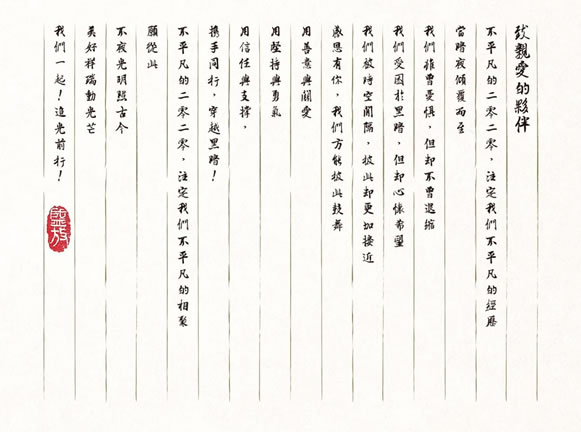 致親愛的夥伴
不平凡的二零二零，注定我們不平凡的經歷
當暗夜傾覆而至
我們雖曾憂懼，但卻不曾退縮
我們受困於黑暗，但卻心懷希望
我們被時空間隔，彼此卻更加接近
感恩有你，我們方能彼此鼓舞
用善意與關愛
用堅持與勇氣
用信任與支撐，
攜手同行，穿越黑暗！
不平凡的二零二零，注定我們不平凡的相聚
願從此
不夜光明照古今
美好祥瑞動光芒
我們一起！追光前行！
盛放